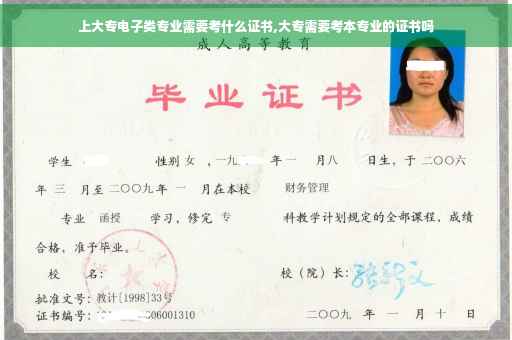 上大专电子类专业需要考什么证书,大专需要考本专业的证书吗
成人高等教育
毕业证书
学生 性别 女 ,一九 年 一 月 八 日生，于 二〇〇六
年 三 月至 二〇〇九 年 一 月在本校 财务管理
专业 函授 学习，修完 专 科教学计划规定的全部课程，成绩
合格，准予毕业。
校 名： 校（院）长：
批准文号：教计[1998]33号
证书编号： 06001310 二〇〇九 年 一 月 十 日